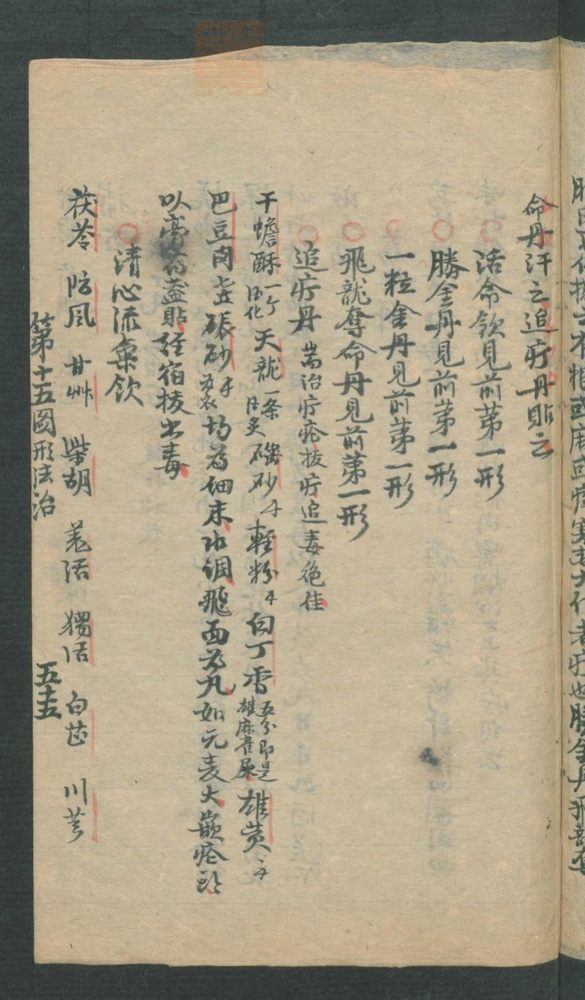 命丹汗之追疔丹貼之
活命飲見前苐一形
勝金丹見前苐一形
一粒金丹見前苐一形
飛龍奪命丹見前苐一形
追疔丹 耑治疔瘡拔疔追毒絶佳
干蟾酥一寸 天龍一条 硇砂 輕粉 白丁香五分即是雄麻雀屎 雄黄
巴豆肉 硃砂 均為細末水調飛面为丸如元麦大嵌疮頭
以膏药盖貼 经宿拔出毒
清心流氣飲
茯苓 防風 甘艸 柴胡 羌活 獨活 白芷 川芎
第十五圖形法治 五十五